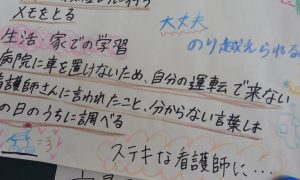 メモをとる
大丈夫
のり越えられる
生活、家での学習
病院に車を置けないため、自分の運転で来ない
看護師さんに言われたこと、分からない言葉は
の日のうちに調べる
ステキな看護師に…